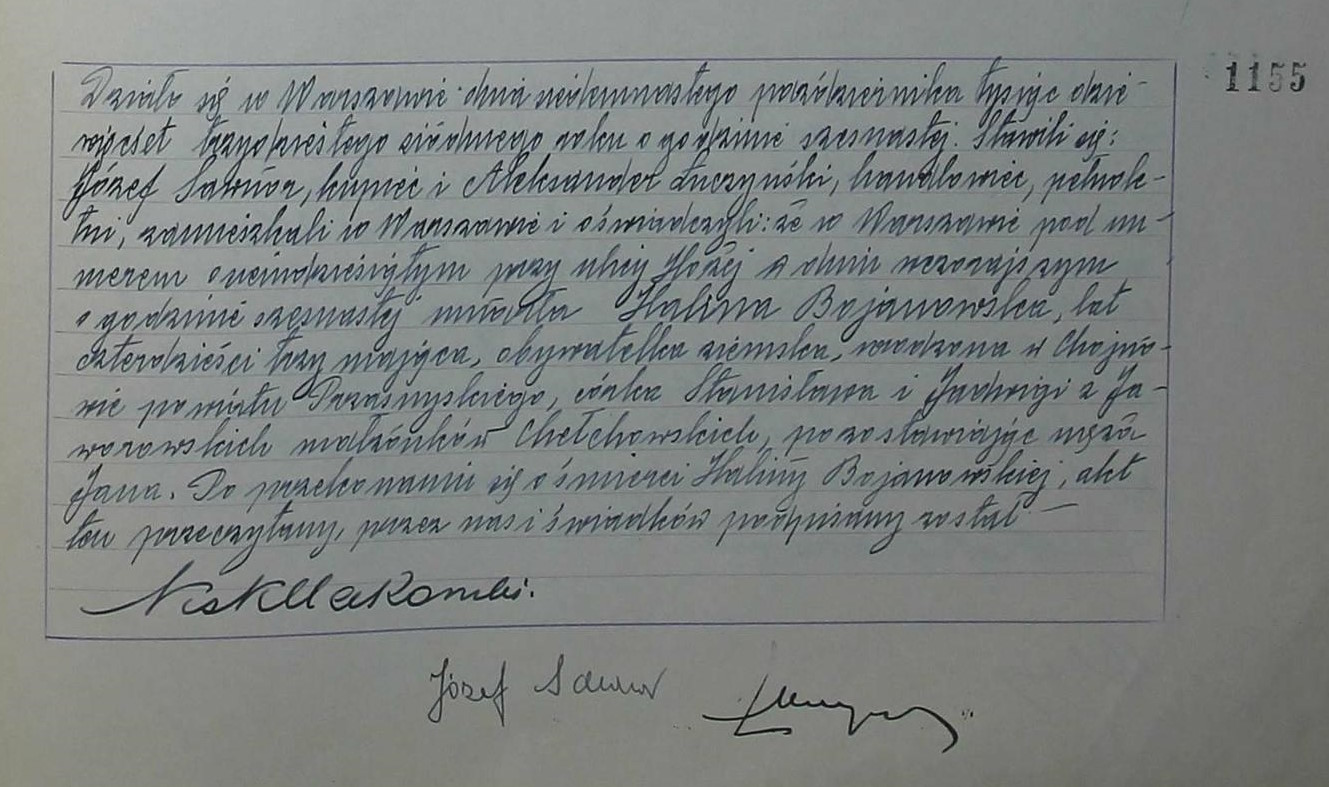 1155
Działo się w Warszawie dnia siedemnastego października tysiąc dzie-
więćset trzydziestego siódmego roku o godzinie szesnastej. Stawili się:
Józef kupiec i Aleksander Łuczyński, handlowiec, pełnole-
tni, zamieszkali w Warszawie i oświadczyli: że w Warszawie pod nu-
merem osiemdziesiątym przy ulicy Hożej w dniu wczorajszym
o godzinie szesnastej umarła Halina Bojanowska, lat
czterdzieści trzy mająca, obywatelka ziemska, urodzona w Chojno-
wie powiatu Przasnyskiego, córka Stanisława i Jadwigi z Ja-
worowskich małżonków Chełchowskich, pozostawiając męża
Jana. Po przekonaniu się o śmierci Haliny Bojanowskiej, akt
ten przeczytany, przez nas i świadków podpisany został —
Józef